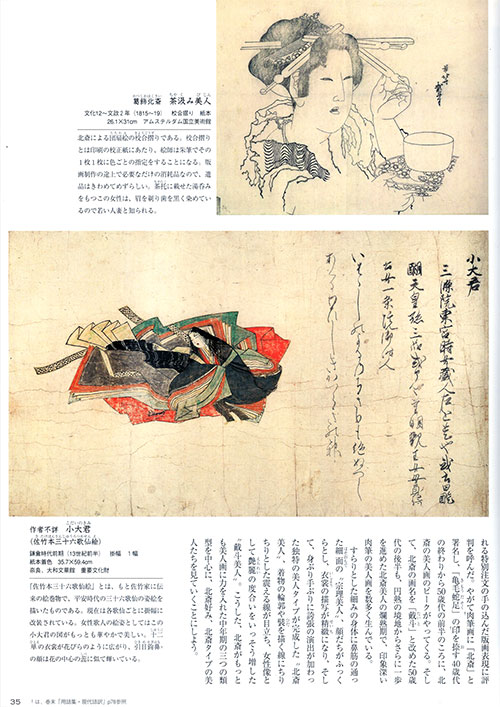 葛飾北斎 茶汲み美人
文化12〜文政2年（1815〜19） 校合摺り 紙本
26.1×31cm アムステルダム国立美術館
北斎による団扇絵の校合摺りである。校合摺り
とは印刷の校正紙にあたり、絵師は朱筆でその
1枚1枚に色ごとの指定をすることになる。版
画制作の途上で必要なだけの消耗品なので、遺
品はきわめてめずらしい。茶托に載せた湯呑み
をもつこの女性は、眉を剃り歯を黒く染めてい
るので若い人妻と知られる。
小大君
三條院東宮時女蔵人
れる特別注文の手の込んだ版画表現に評
判を呼んだ。やがて肉筆画に「北斎」と
署名し、「亀毛蛇足」の印を捺す40歳代
の終わりから50歳代の前半のころに、北
斎の美人画のピークがやってくる。そし
て、北斎の画名を「戴斗」と改めた50歳
代の後半も、円熟の境地からさらに一歩
を進めた北斎美人の爛熟期で、印象深い
肉筆の美人画を数多く生んでいる。
すらりとした細みの身体に鼻筋の通っ
た細面の"宗理美人"、顔だちがふっく
らとし、衣裳の描写が精緻になり、そし
て、身ぶり手ぶりに誇張の演出が加わっ
た独特の美人タイプが完成した"北斎
美人"、着物の輪郭や襞を描く線にちり
ちりとした震える線が目立ち、女性像と
して艶麗の度合いをいっそう増した
"戴斗美人"。こうした、北斎がもっと
も美人画に力を入れた中年期の三つの類
型を中心に、北斎好み、北斎タイプの美
人たちを見ていくことにしよう。
作者不詳 小大君
（佐竹本三十六歌仙絵）
鎌倉時代前期（13世紀前半） 掛幅 1幅
紙本着色 35.7×59.4cm
奈良、大和文華館 重要文化財
「佐竹本三十六歌仙絵」とは、もと佐竹家に伝
来の絵巻物で、平安時代の三十六歌仙の姿絵を
描いたものである。現在は各歌仙ごとに掛幅に
改装されている。女性歌人の絵姿としてはこの
小大君の図がもっとも華やかで美しい。十二
単の衣裳が花びらのように広がり、引目鉤鼻
の顔は花の中心の蕊に似て輝いている。
35
*は、巻末「用語集・現代語訳」p78参照